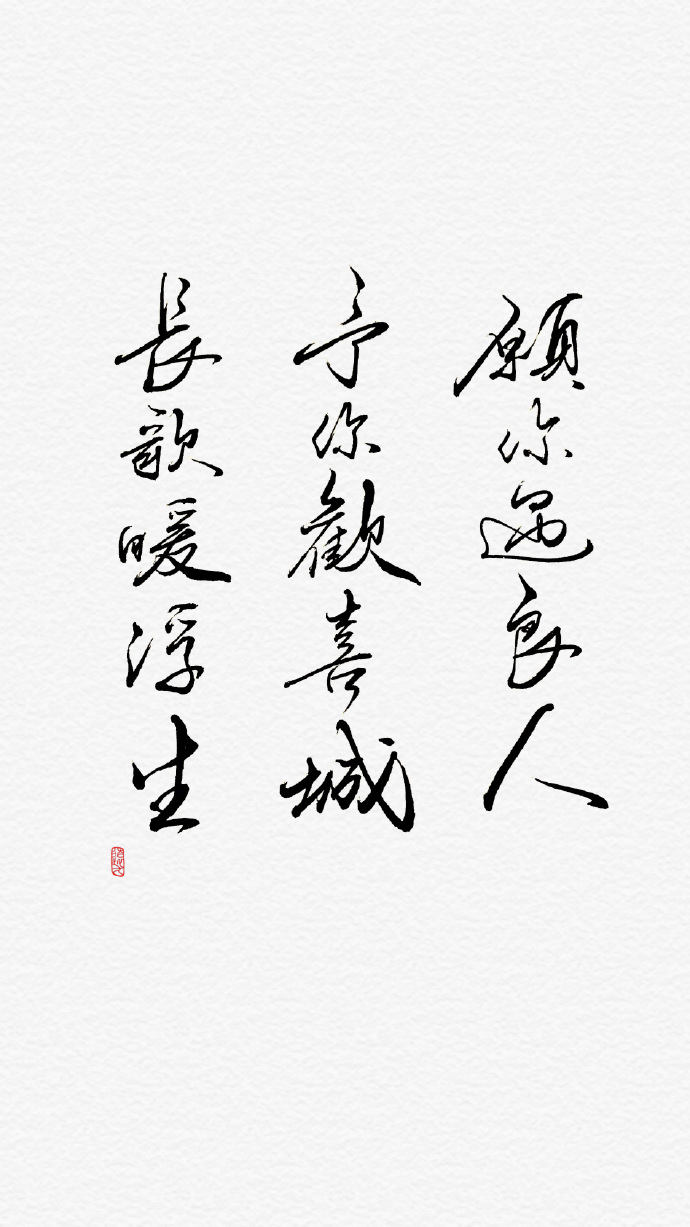 願你遇良人
予你歡喜城
長歌暖浮生